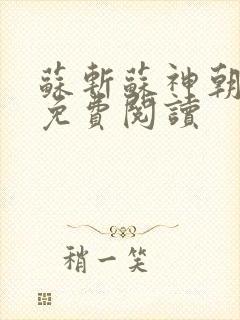 蘇斬蘇神朝
免費閱讀
稍一笑